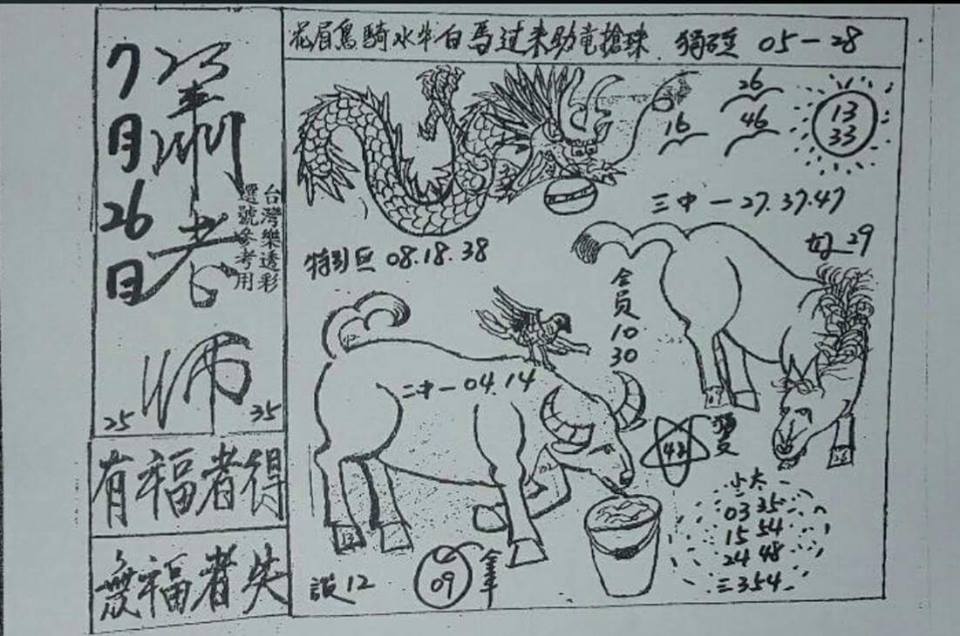 7月26日
蕭老師
台灣樂透彩
選號參考用
25
35
有福者得
無福者失
花眉鳥騎水牛白馬过来助竜搶珠 獨碰 05-28
26
16
46
13
33
三中一27.37.47
特别 08.18.38
29
会員
10
30
二中一04.14
42
小大
03 35
15 54
24 48
三354
12
09